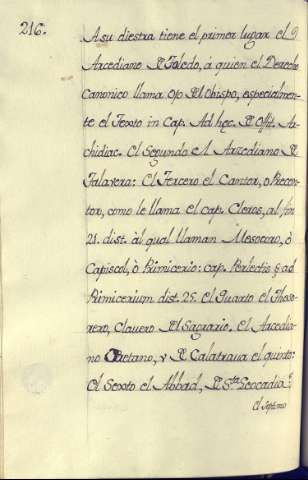 216.
A su diestra tiene el primer lugar el
Arcediano de Toledo, á quien el Derecho
Canonico llama Ojo del Obispo, especialmen-
te el Texto in Cap. Ad hęc. de Offi. Ar-
chidiac. El Segundo el Arzediano de
Talavera: El Tercero el Cantor, o Precen-
tor, como le llama el cap. Cleros, al fin
21. dist. àl qual llaman Mesocoro, ò
Capiscol, ò Primicerio: cap. Perlectis § ad
Primicerium dist. 25. El Quarto el Theso-
rero, Clavero del Sagrario. El Arcedia-
no , y de Calatraua el quinto:
El Sexto el Abbad, de Sta. Leocadia:
El Septimo